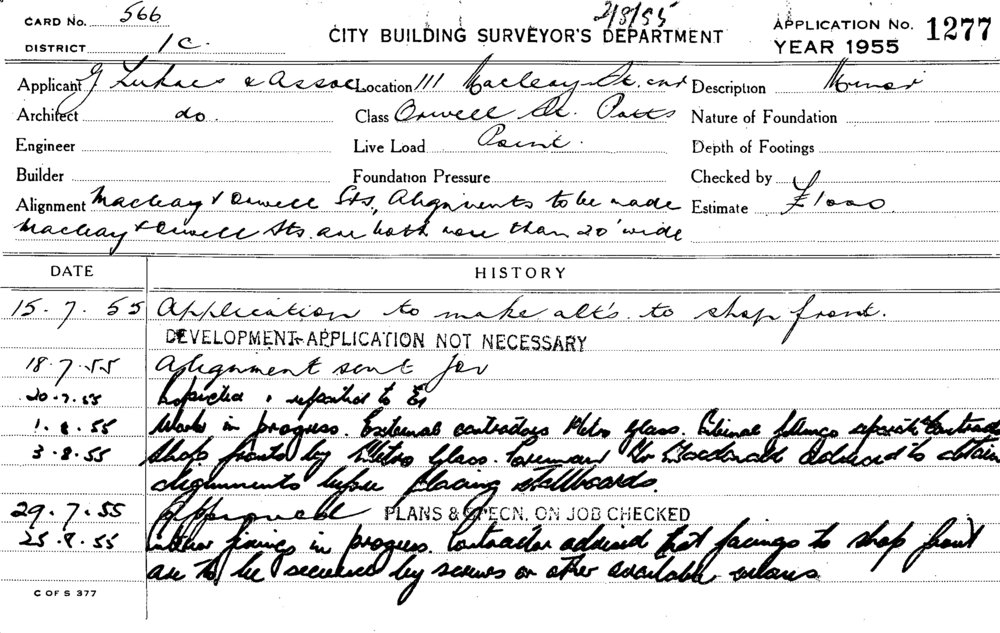 CARD No. 566
2/8/55
APPLICATION No. 1277
DISTRICT 1C.
CITY BUILDING SURVEYOR'S DEPARTMENT
YEAR 1955
Applicant G Lukacs & Assoc Location 111 Macleay St. cnr Description Minor
Architect do. Class Orwell St. Potts Nature of Foundation
Engineer Live Load Point. Depth of Footings
Builder Foundation Pressure Checked by
Alignment Macleay & Orwell Sts, Alignments to be made Estimate £1000
Macleay & Orwell Sts. are both more than 20' wide
DATE HISTORY
15.7.55 Application to make alt's. to shop front.
DEVELOPMENT APPLICATION NOT NECESSARY
18.7.55 Alignment sent for
20.7.55 Inspected & reported to
1.8.55 Work in progress. External contractors Metro Glass. Internal separate contractor
3.8.55 Shop fronts by Metro Glass. Foreman Mr Macdonald advised to obtain
alignments before placing stallboards.
29.7.55 Approved PLANS & SPECN. ON JOB CHECKED
25.8.55 fixings in progress. Contractor advised that facings to shop front
are to be secured by screws or other available means
C OF S 377